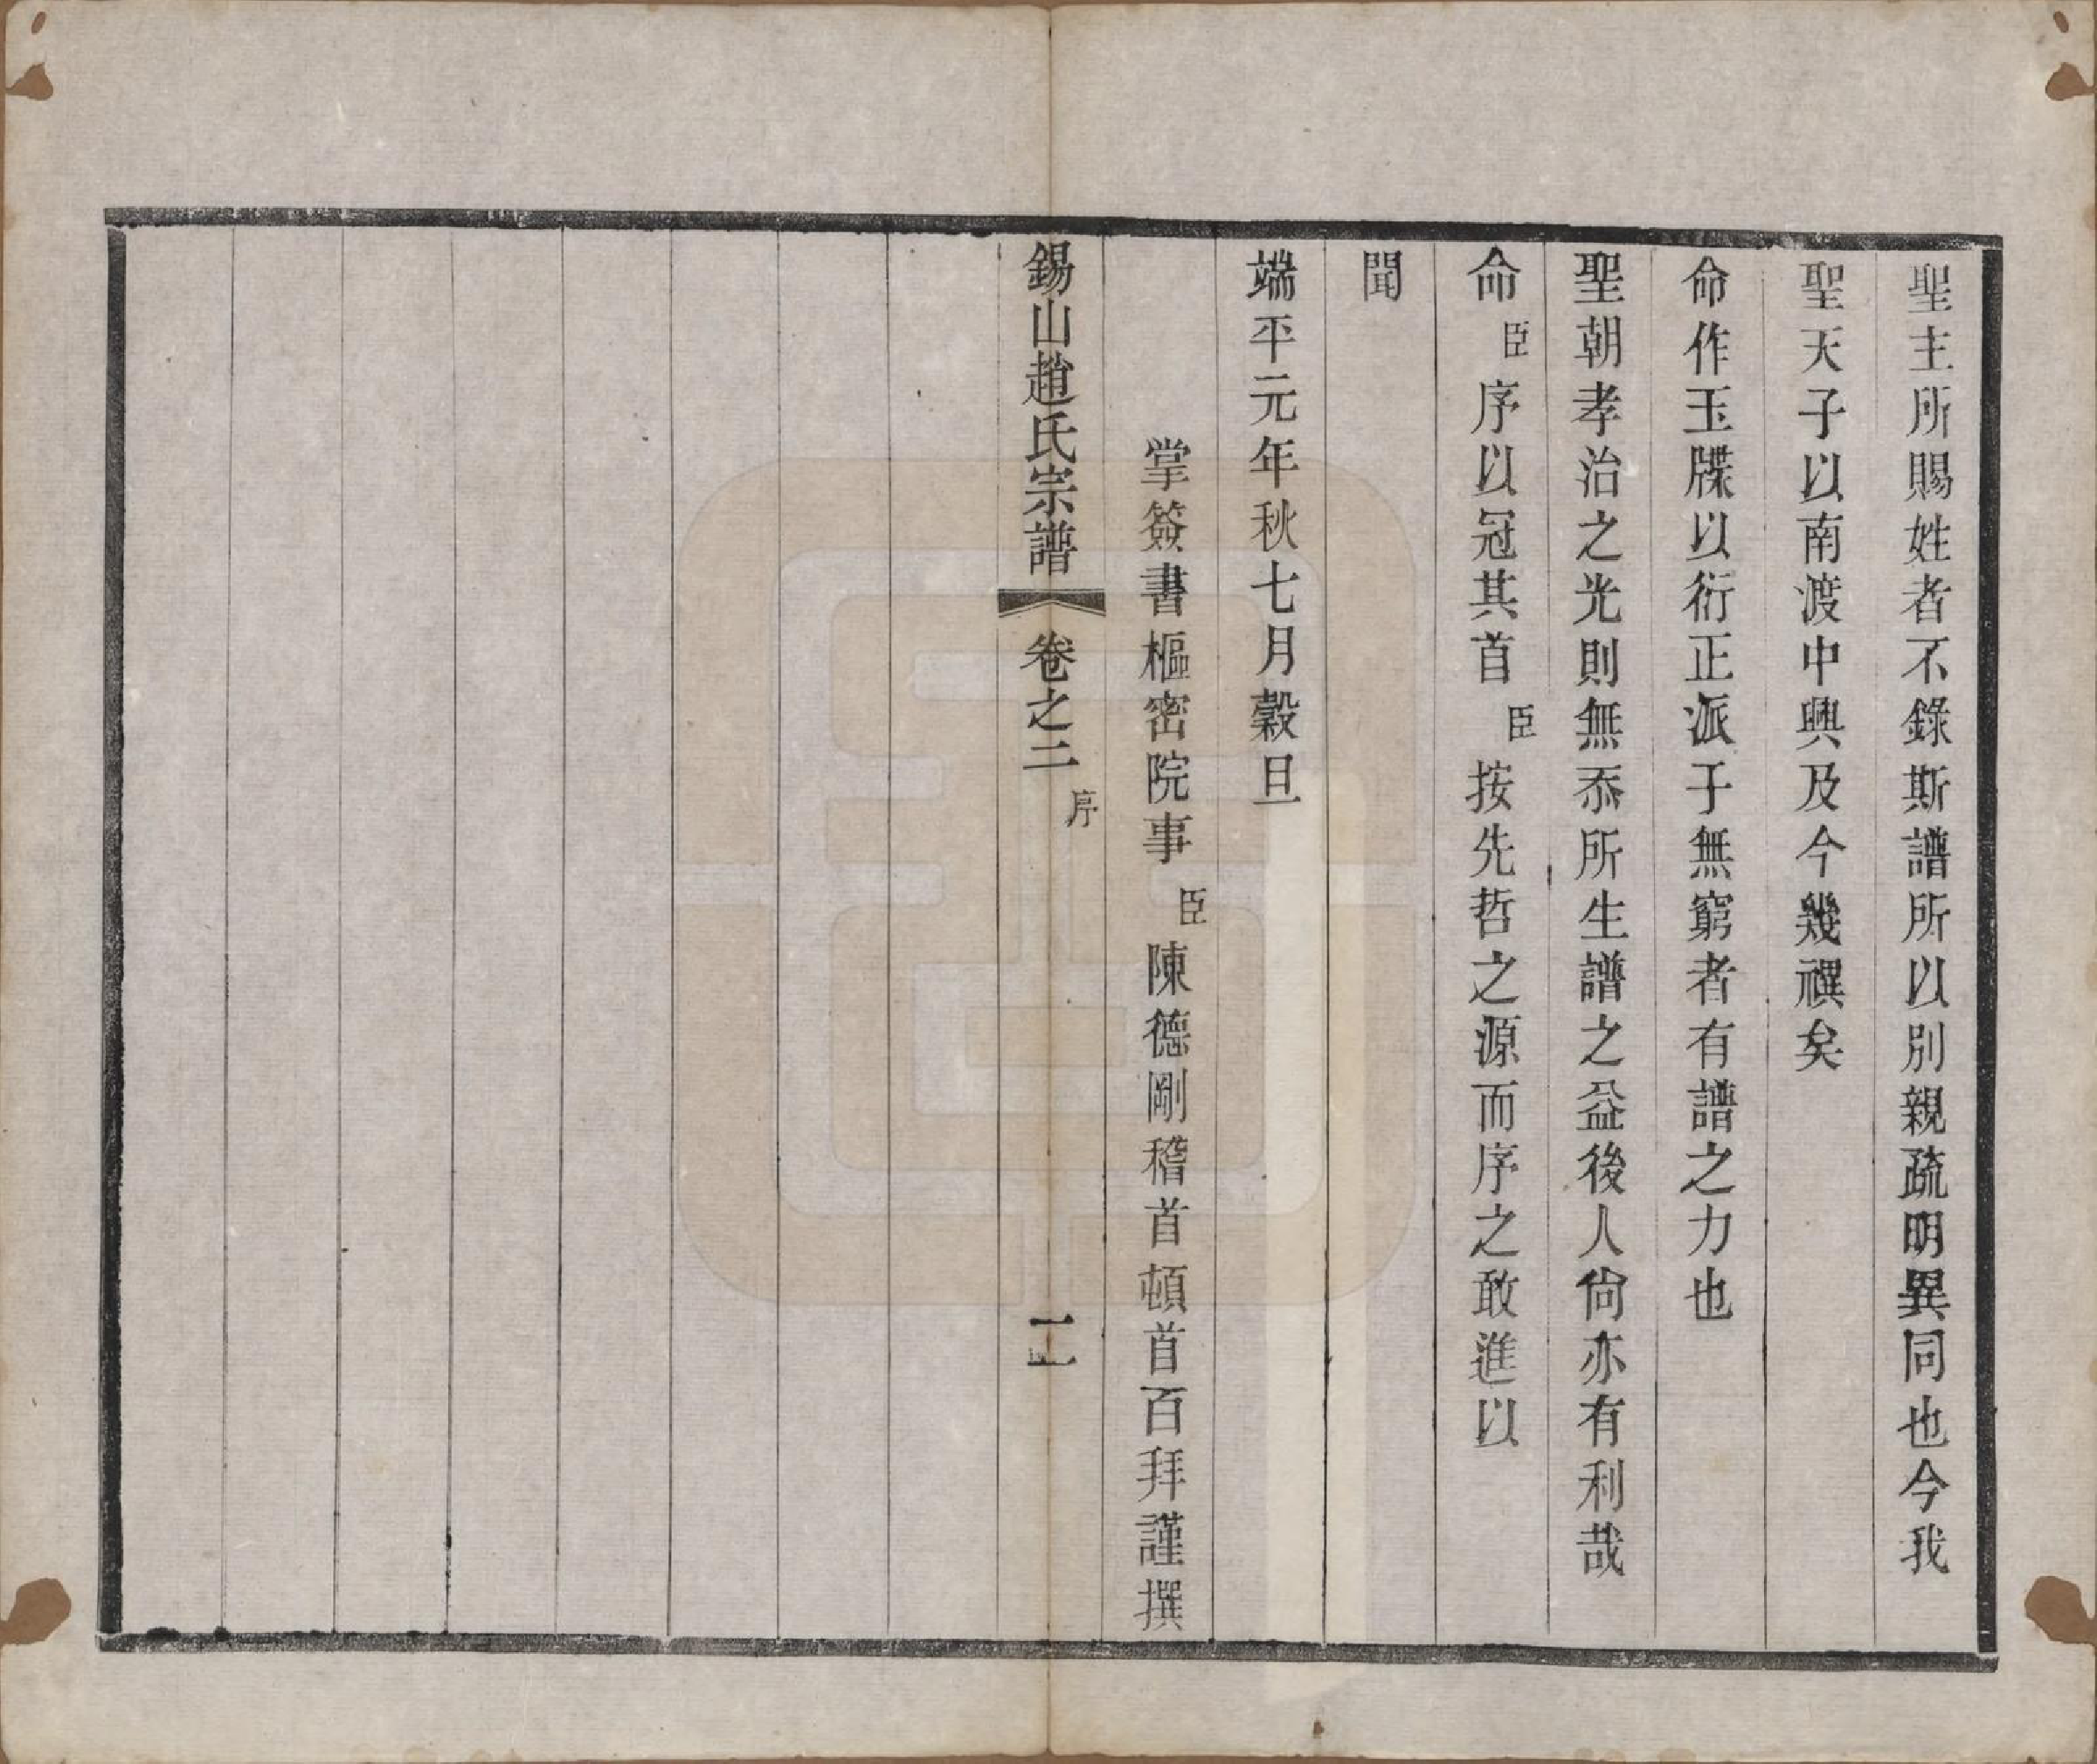 聖主所賜姓者不錄斯譜所以別親疏明異同也今我
聖天子以南渡中興及今幾禩矣
命作玉牒以衍正派子無窮者有譜之力也
聖朝孝治之光則無忝所生譜之益後人尙亦有利哉
命臣序以冠其首臣按先哲之源而序之敢進以
聞
端平元年秋七月穀旦
掌簽書樞密院事臣陳德剛稽首頓首百拜謹撰
錫山趙氏宗譜 卷之二 序 二